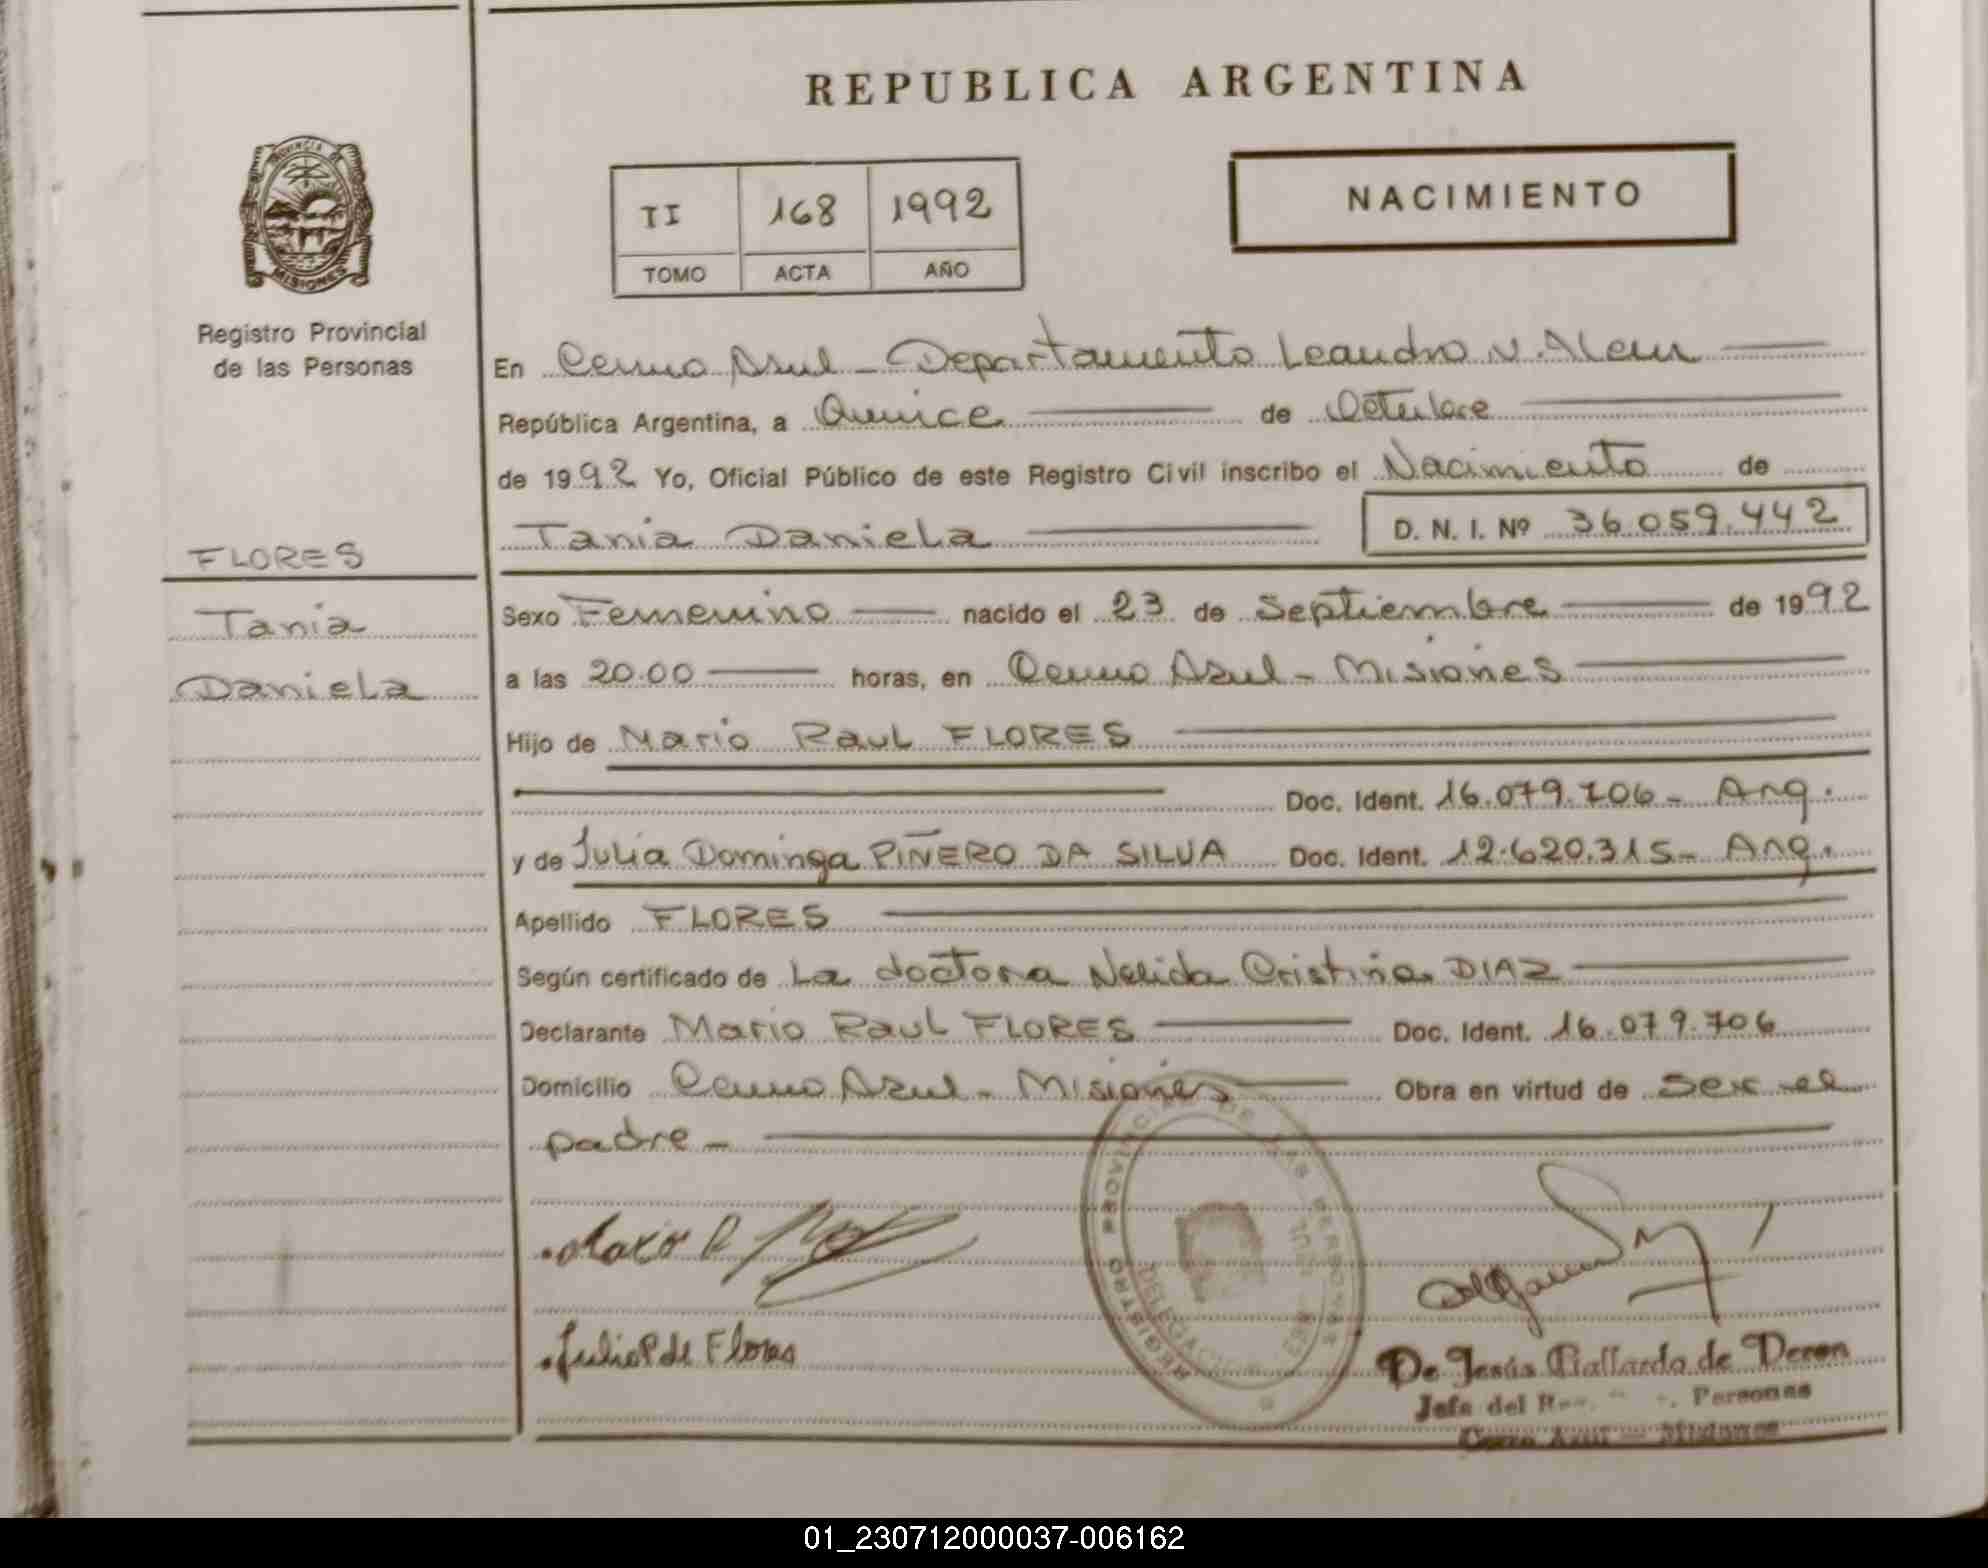 REPUBLICA ARGENTINA
PROVINCIA DE
MISIONES
TI 168 1992
TOMO ACTA AÑO
NACIMIENTO
Registro Provincial
de las Personas
En Cerro Azul - Departamento Leandro N. Alem
República Argentina, a Quince de Octubre
de 1992 Yo, Oficial Público de este Registro Civil inscribo el Nacimiento de
Tania Daniela D. N. I. Nº 36.059.442
FLORES
Tania
Daniela
Sexo Femenino nacido el 23 de Septiembre de 1992
a las 20.00 horas, en Cerro Azul - Misiones
Hijo de Mario Raul FLORES
Doc. Ident. 16.079.706 - Arg.
y de Julia Dominga PIÑERO DA SILVA Doc. Ident. 12.620.315 - Arg.
Apellido FLORES
Según certificado de La doctora Nelida Cristina DIAZ
Declarante Mario Raul FLORES Doc. Ident. 16.079.706
Domicilio Cerro Azul - Misiones Obra en virtud de ser el
padre -
REGISTRO PROVINCIAL DE LAS PERSONAS
DELEGACION
Julia P de Flores
De Jesús Gallardo de Deron
Jefa del Personas
Cerro Azul - Misiones
01_230712000037-006162